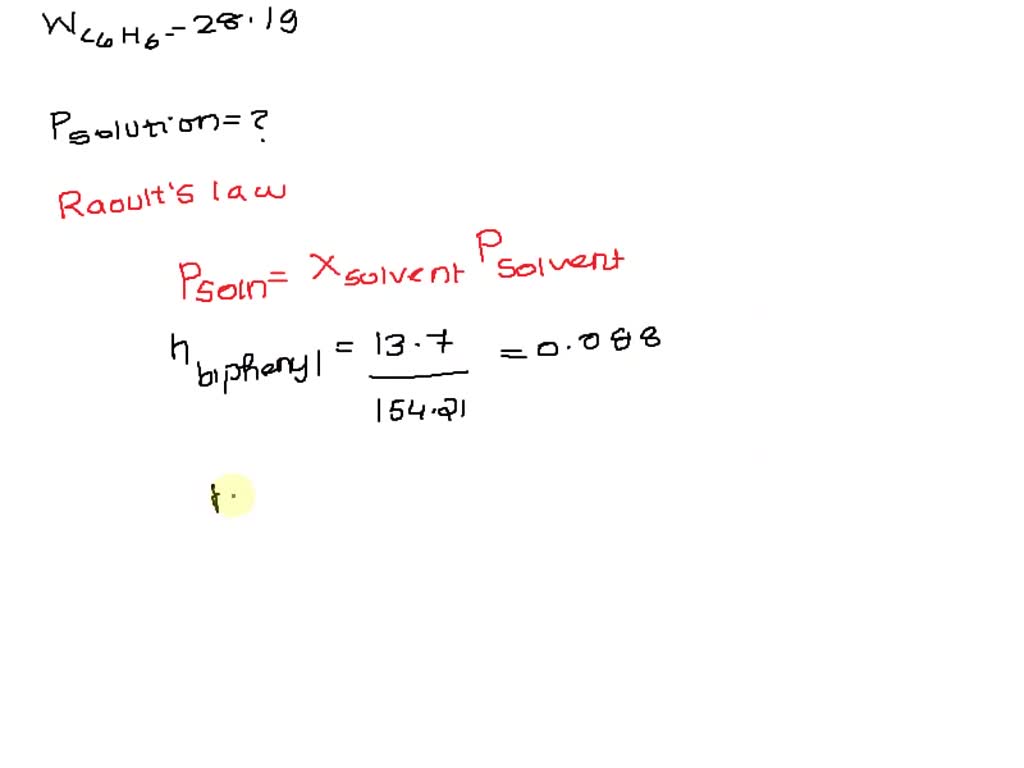 W C6H6 = 28.1g
Psolution = ?
Raoult's law
Psoln = Xsolvent Psolvent
n biphenyl = 13.7 / 154.21 = 0.088